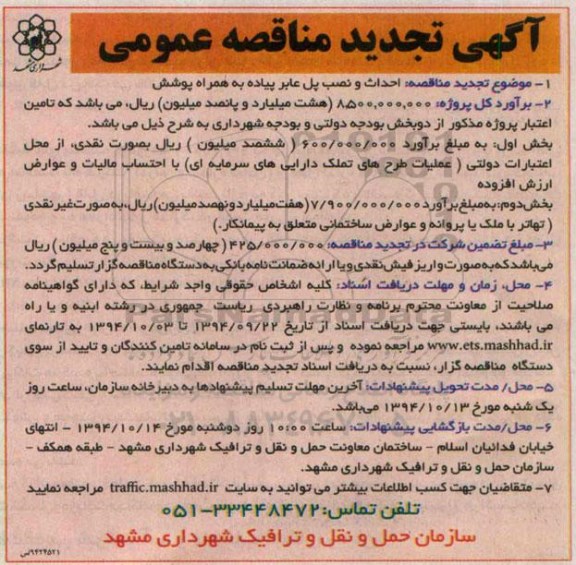 آگهی تجدید مناقصه عمومی
شهرداری مشهد
۱- موضوع تجدید مناقصه: احداث و نصب پل عابر پیاده به همراه پوشش
۲- برآورد کل پروژه: ۸۵۰۰,۰۰۰,۰۰۰ (هشت میلیارد و پانصد میلیون) ریال، می باشد که تامین
اعتبار پروژه مذکور از دوبخش بودجه دولتی و بودجه شهرداری به شرح ذیل می باشد.
بخش اول: به مبلغ برآورد ۶۰۰/۰۰۰/۰۰۰ ( ششصد میلیون ) ریال بصورت نقدی، از محل
اعتبارات دولتی ( عملیات طرح های تملک دارایی های سرمایه ای) با احتساب مالیات و عوارض
ارزش افزوده
بخش دوم: به مبلغ برآورد ۷/۹۰۰/۰۰۰/۰۰۰ (هفت میلیارد و نهصد میلیون) ریال، به صورت غیر نقدی
( تهاتر با ملک یا پروانه و عوارض ساختمانی متعلق به پیمانکار.)
۳- مبلغ تضمین شرکت در تجدید مناقصه: ۴۲۵/۰۰۰/۰۰۰ ( چهارصد و بیست و پنج میلیون ) ریال
می باشد که به صورت واریز فیش نقدی و یا ارائه ضمانت نامه بانکی به دستگاه مناقصه گزار تسلیم گردد.
۴- محل، زمان و مهلت دریافت اسناد: کلیه اشخاص حقوقی واجد شرایط، که دارای گواهینامه
صلاحیت از معاونت محترم برنامه و نظارت راهبردی ریاست جمهوری در رشته ابنیه و یا راه
می باشند، بایستی جهت دریافت اسناد از تاریخ ۱۳۹۴/۰۹/۲۲ تا ۱۳۹۴/۱۰/۰۳ به تارنمای
www.ets.mashhad.ir مراجعه نموده و پس از ثبت نام در سامانه تامین کنندگان و تایید از سوی
دستگاه مناقصه گزار، نسبت به دریافت اسناد تجدید مناقصه اقدام نمایند.
۵- محل/ مدت تحویل پیشنهادات: آخرین مهلت تسلیم پیشنهادها به دبیرخانه سازمان، ساعت روز
یک شنبه مورخ ۱۳۹۴/۱۰/۱۳ می‌باشد.
۶- محل/مدت بازگشایی پیشنهادات: ساعت ۱۰:۰۰ روز دوشنبه مورخ ۱۳۹۴/۱۰/۱۴ - انتهای
خیابان فدائیان اسلام - ساختمان معاونت حمل و نقل و ترافیک شهرداری مشهد - طبقه همکف -
سازمان حمل و نقل و ترافیک شهرداری مشهد.
۷- متقاضیان جهت کسب اطلاعات بیشتر می توانید به سایت traffic.mashhad.ir مراجعه نمایید
تلفن تماس: ۳۳۴۴۸۴۷۲-۰۵۱
سازمان حمل و نقل و ترافیک شهرداری مشهد
۹۴۲۴۵۲۱/س